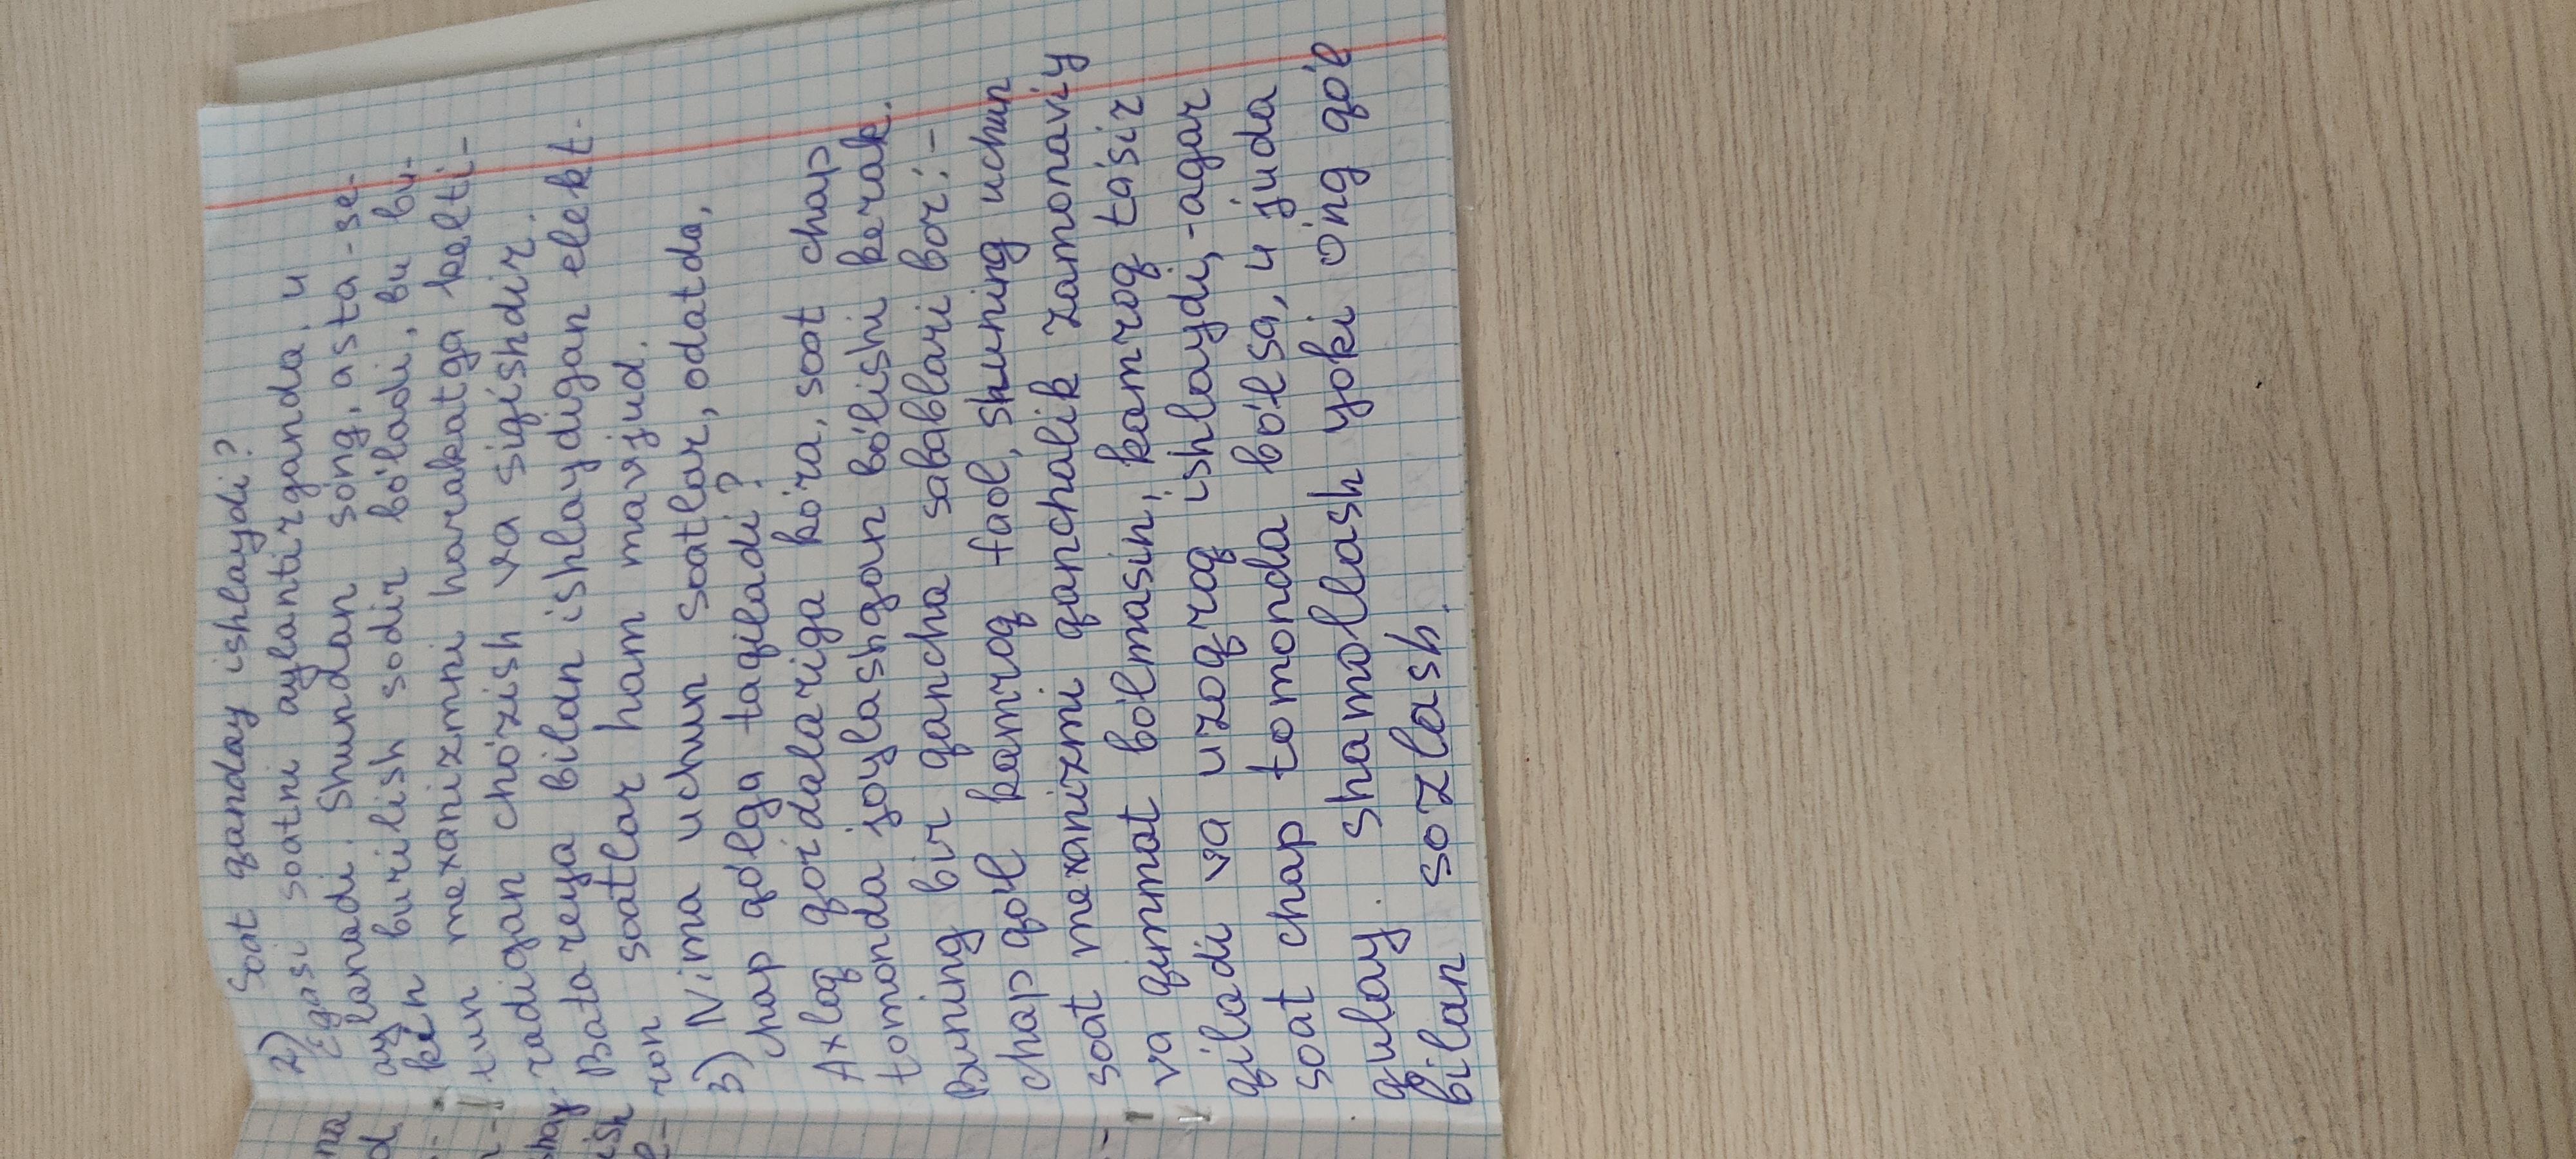 2) Soat qanday ishlaydi?
Egasi soatni aylantirganda, u
aylanadi. Shundan so'ng, asta-se-
kin burilish sodir bo'ladi, bu bu-
tun mexanizmni harakatga kelti-
radigan cho'zish va siqishdir.
Batareya bilan ishlaydigan elekt-
ron soatlar ham mavjud.
3) Nima uchun soatlar, odatda,
chap qo'lga taqiladi?
Axloq qoidalariga ko'ra, soat chap
tomonda joylashgan bo'lishi kerak.
Buning bir qancha sabablari bor:-
chap qo'l kamroq faol, shuning uchun
soat mexanizmi qanchalik zamonaviy
va qimmat bo'lmasin, kamroq ta'sir
qiladi va uzoqroq ishlaydi,-agar
soat chap tomonda bo'lsa, u juda
qulay. shamollash yoki o'ng qo'l
bilan sozlash.